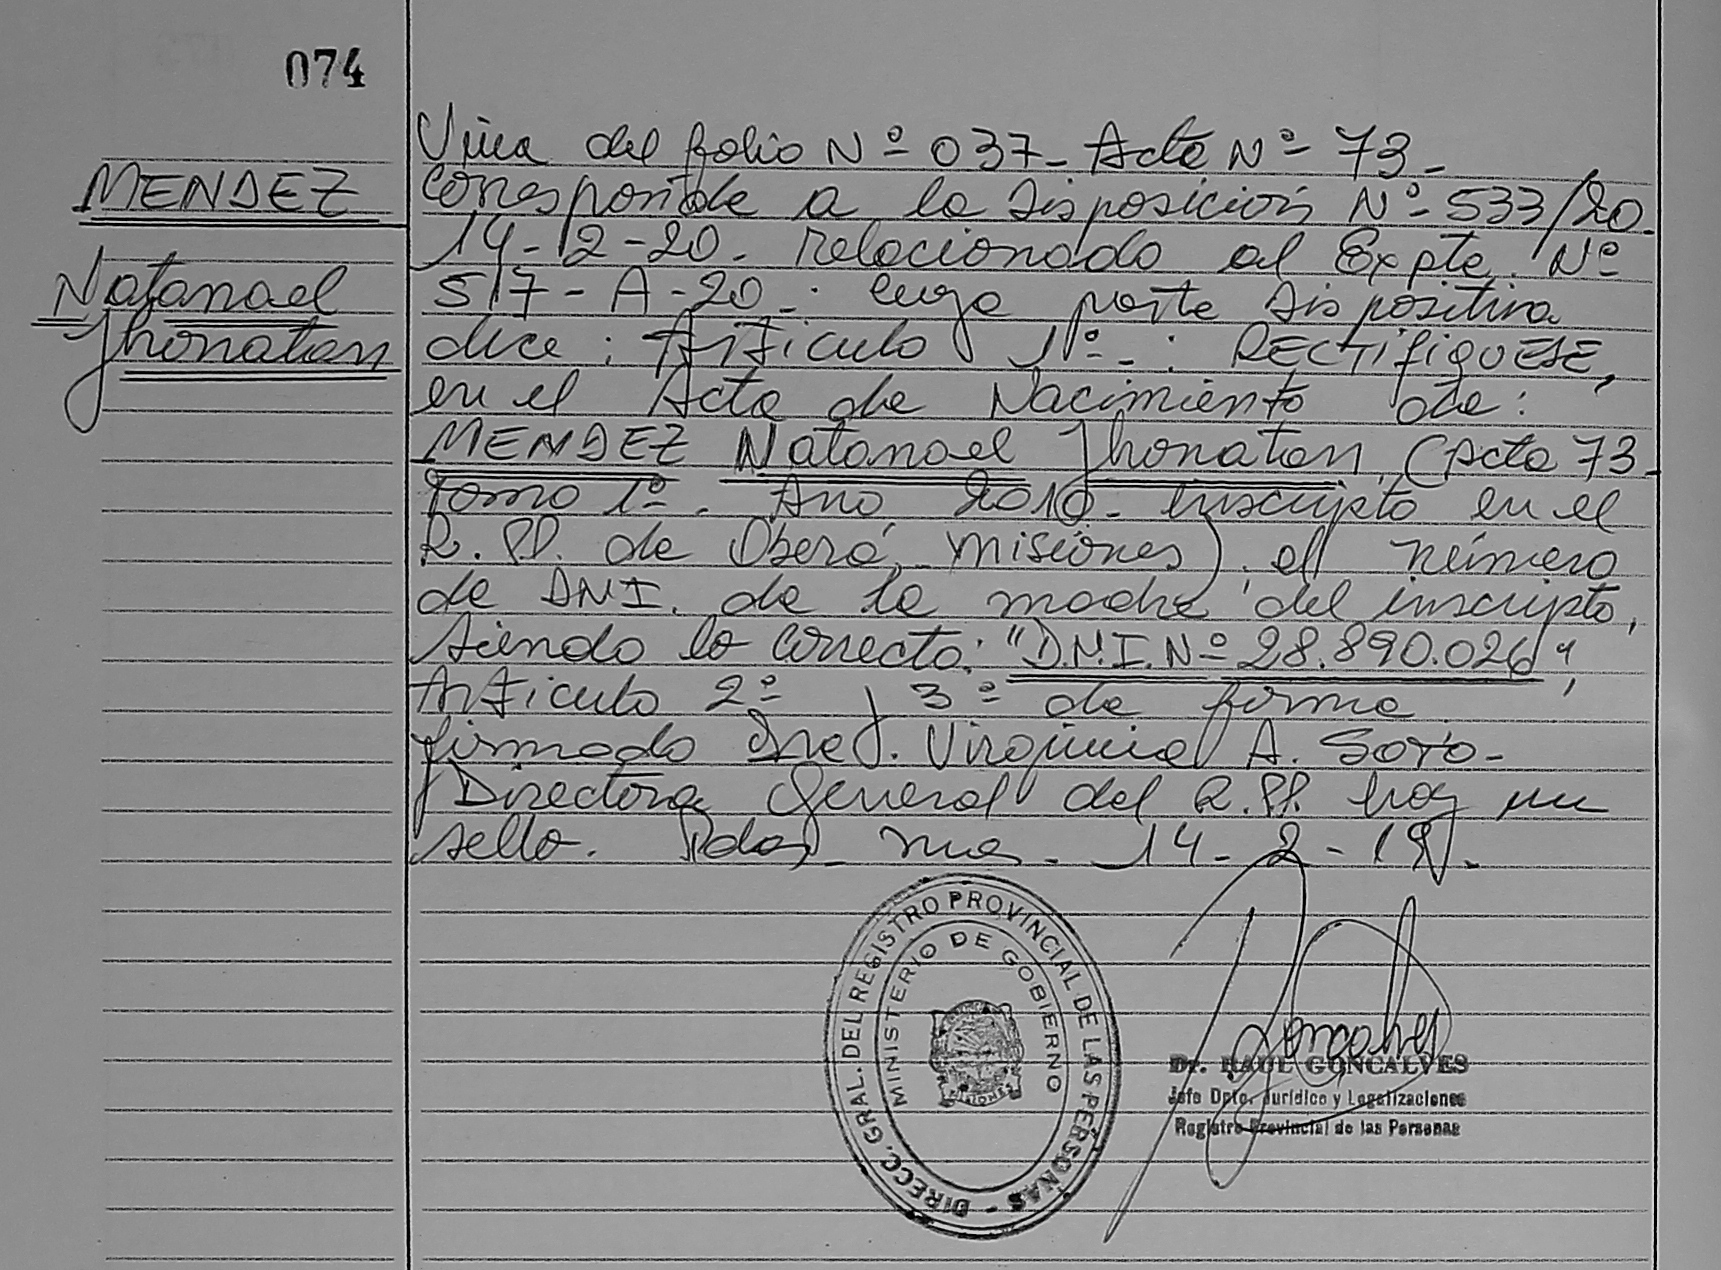 074
MENDEZ
Natanael
Jhonatan
Viene del folio Nº 037- Acta Nº 73-
corresponde a la Disposición Nº 533/20.
14-2-20. relacionado al Expte. Nº
517-A-20-: cuya parte Dispositiva
dice: Artículo 1º-: RECTIFIQUESE,
en el Acta de Nacimiento de:
MENDEZ Natanael Jhonatan (Acta 73-
Tomo 1º. Año 2010- inscripto en el
R.PP. de Oberá, Misiones) el número
de DNI. de la madre del inscripto,
siendo lo correcto: "D.N.I. Nº 28.890.026",
Artículo 2º y 3º de forma
firmado Virginia A. SOTO-
Directora General del R.PP. hay un
sello. Pdas, Mnes. 14-2-
DIRECC. GRAL. DEL REGISTRO PROVINCIAL DE LAS PERSONAS -
MINISTERIO DE GOBIERNO
MISIONES
Goncalves
Dr. RAUL GONCALVES
Jefe Dpto. Jurídico y Legalizaciones
Registro Provincial de las Personas